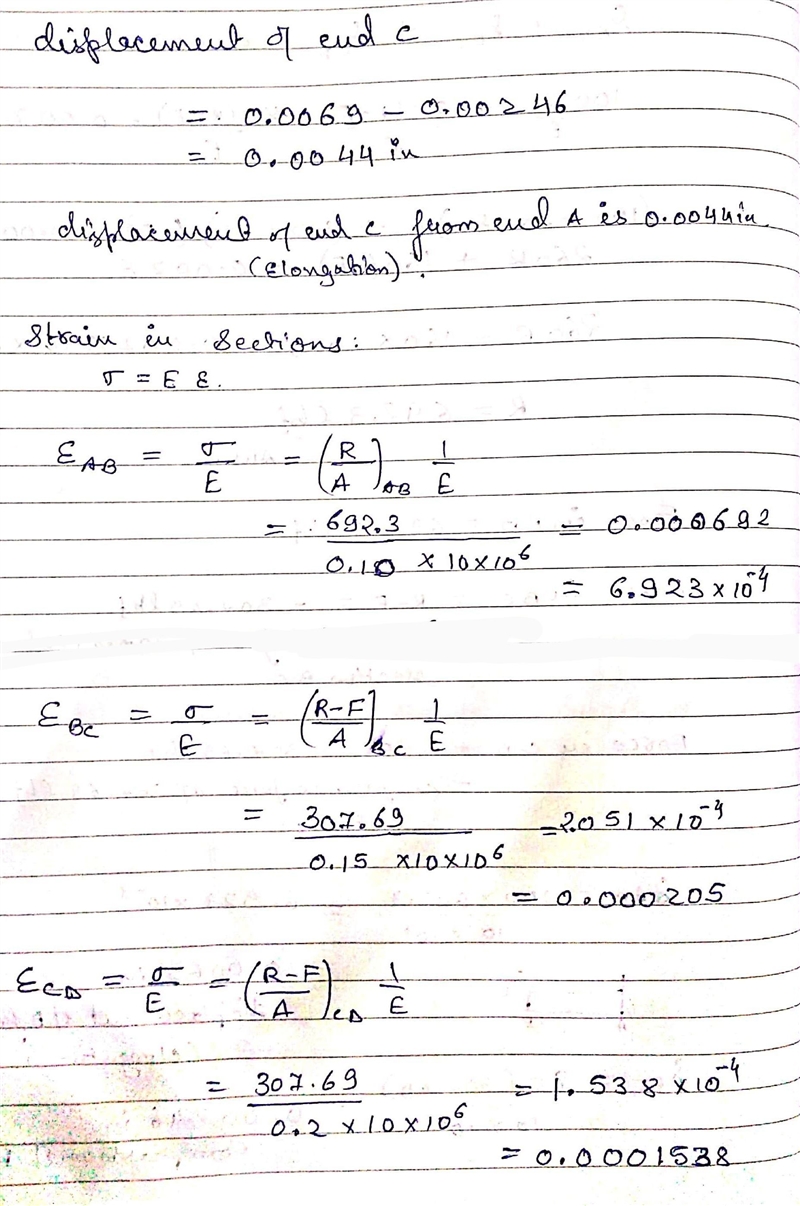 displacement of end c
= 0.0069 - 0.00246
= 0.0044 in
displacement of end c from end A is 0.0044in.
(Elongation).
Strain in Sections:
σ = E ε.
ε_AB = σ/E = (R/A)_AB 1/E
= 692.3 / (0.10 × 10×10⁶) = 0.000692
= 6.923 × 10⁻⁴
ε_BC = σ/E = (R-F/A)_BC 1/E
= 307.69 / (0.15 ×10×10⁶) = 2.051 × 10⁻⁴
= 0.000205
ε_CD = σ/E = (R-F/A)_CD 1/E
= 307.69 / (0.2 ×10×10⁶) = 1.538 ×10⁻⁴
= 0.0001538